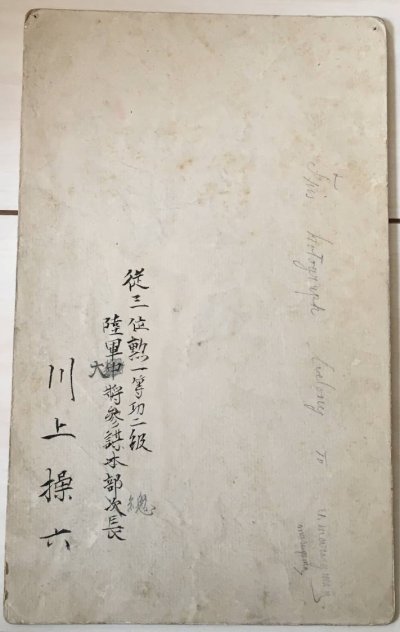 從三位勲一等功二級
陸軍中將参謀本部次長
大
總
川上操六
This Photograph belong To